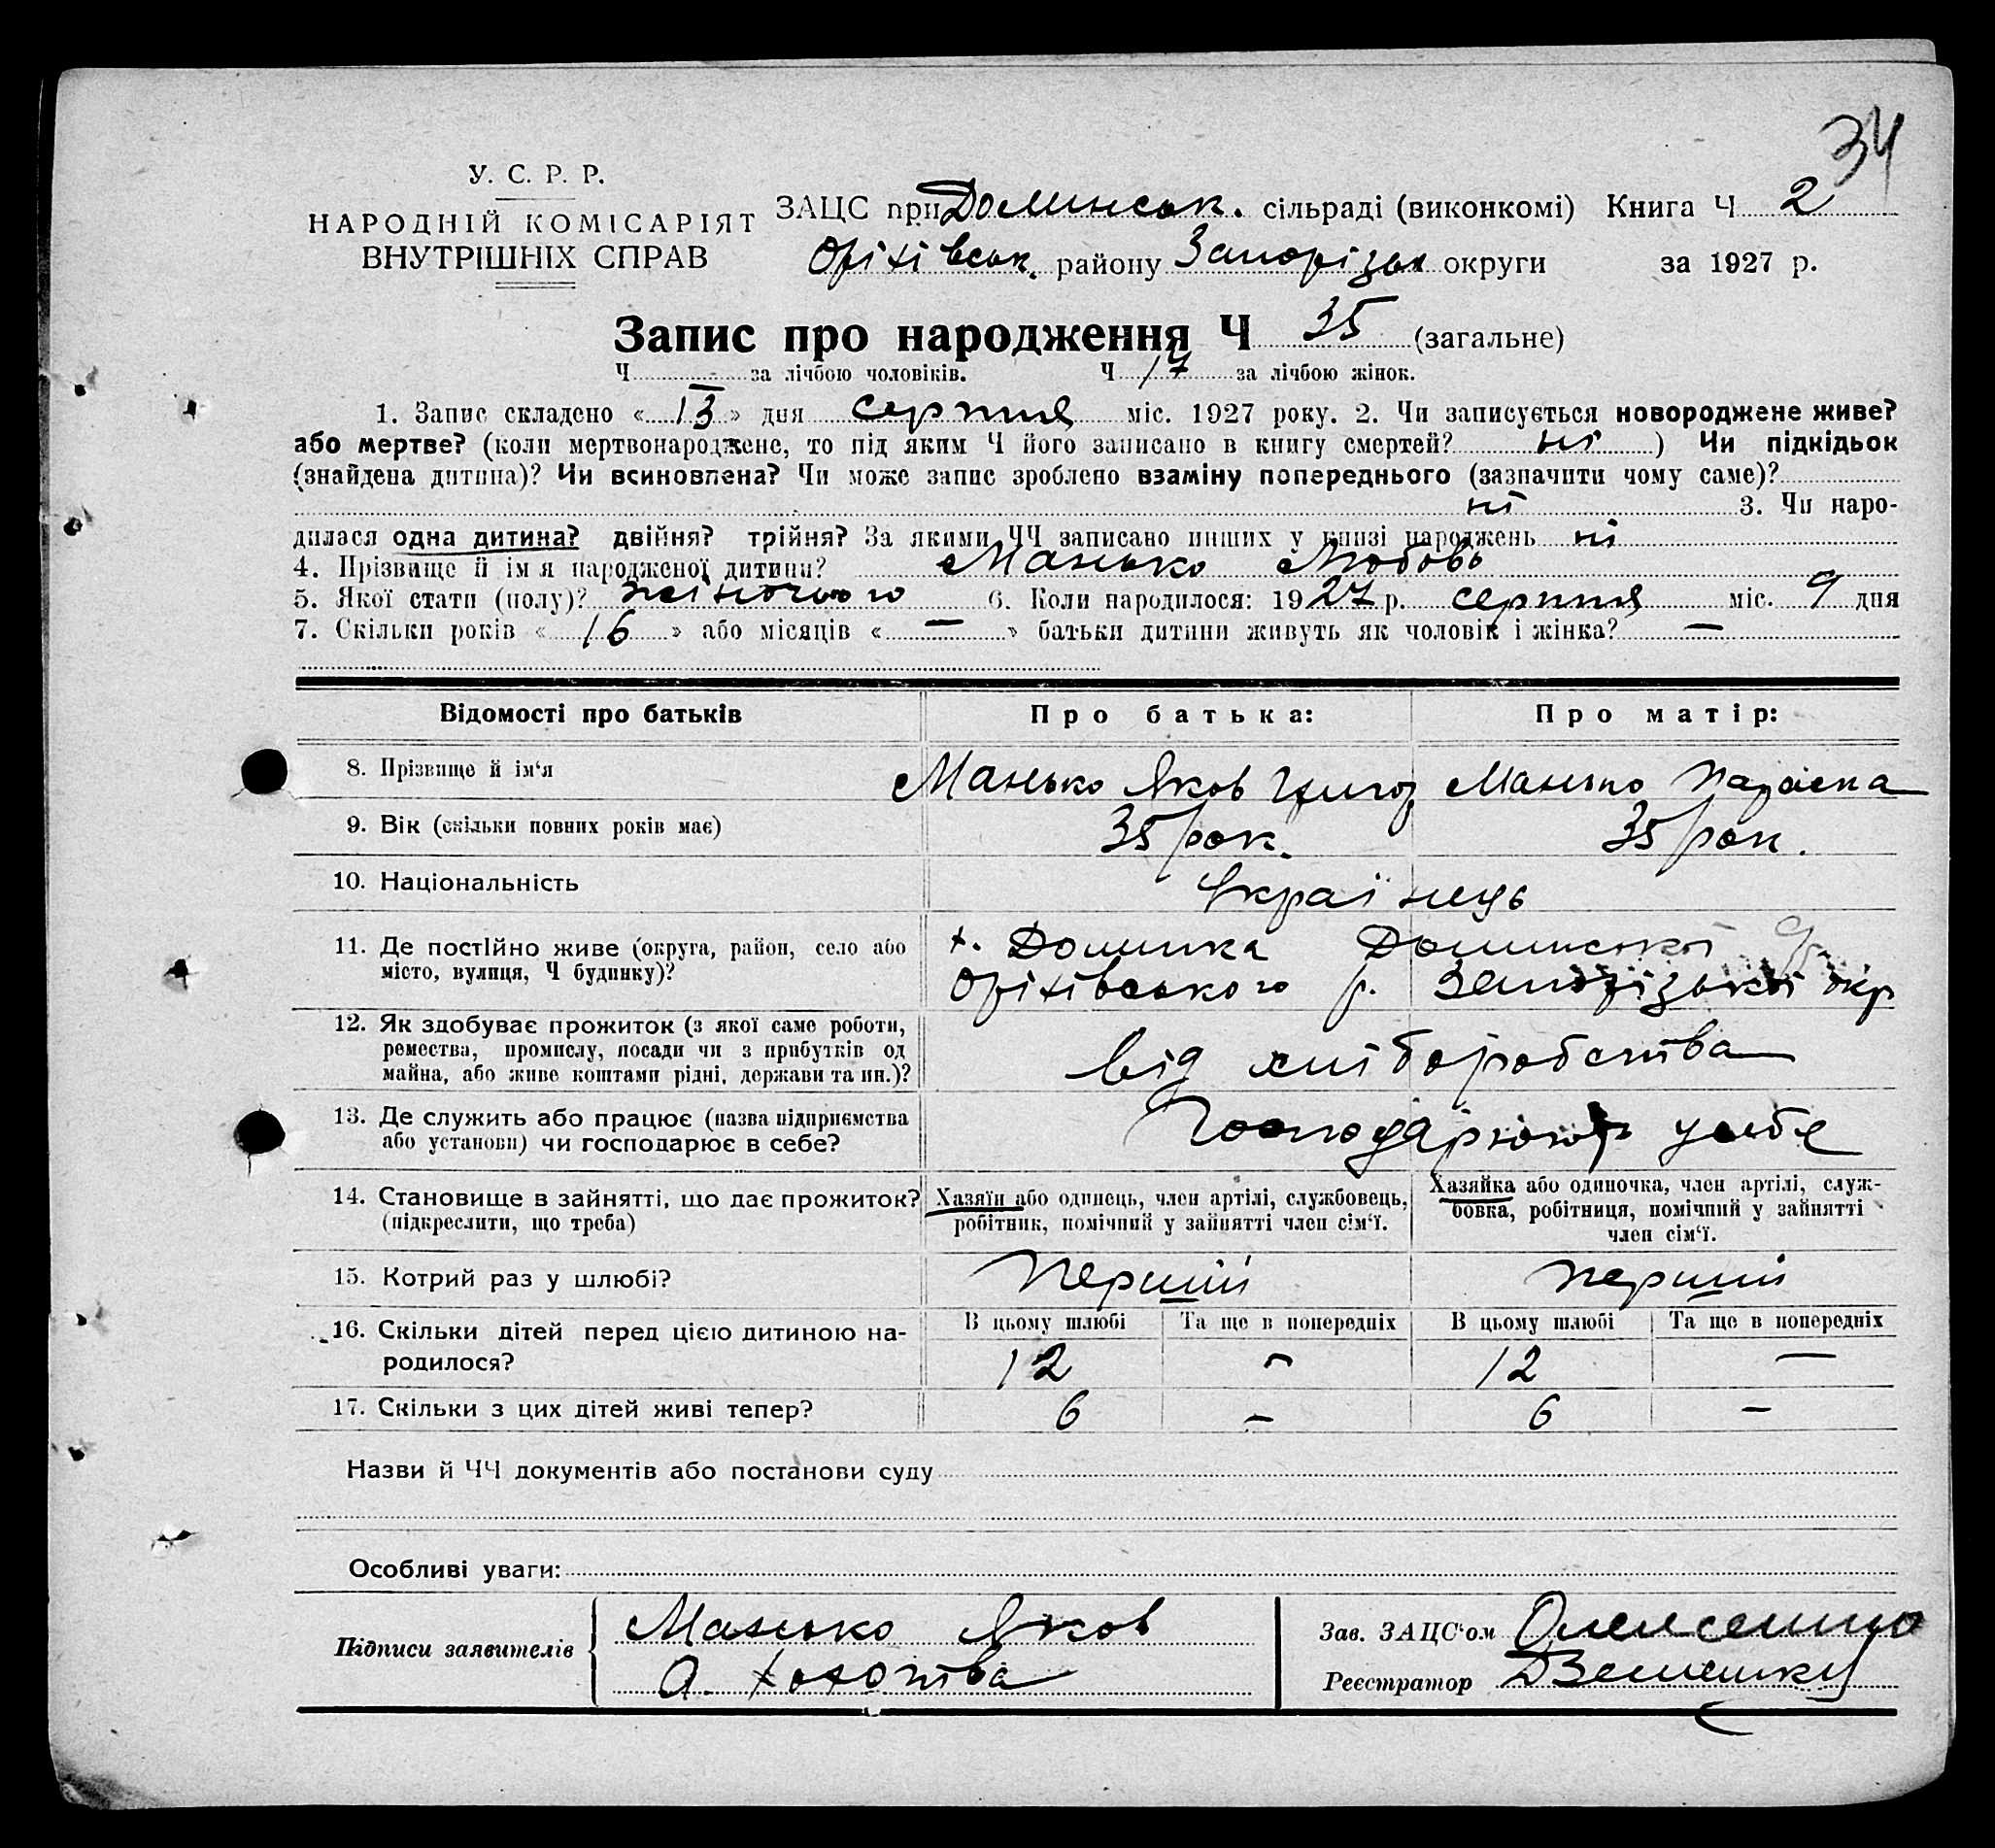 34
У. С. Р. Р.
НАРОДНІЙ КОМІСАРІЯТ
ВНУТРІШНІХ СПРАВ
ЗАЦС при Долинськ. сільраді (виконкомі) Книга Ч 2
Оріхівськ. району Запорізьк округи за 1927 р.
Запис про народження Ч 35 (загальне)
Ч - за лічбою чоловіків. Ч 17 за лічбою жінок.
1. Запис складено « 13 » дня серпня міс. 1927 року. 2. Чи записується новороджене живе?
або мертве? (коли мертвонароджене, то під яким Ч його записано в книгу смертей? ні ) Чи підкідьок
(знайдена дитина)? Чи всиновлена? Чи може запис зроблено взаміну попереднього (зазначити чому саме)?
ні 3. Чи наро-
дилася одна дитина? двійня? трійня? За якими ЧЧ записано инших у книзі народжень ні
4. Прізвище й ім я народженої дитини? Манько Любовь
5. Якої стати (полу)? жіночого 6. Коли народилося: 1927 р. серпня міс. 9 дня
7. Скільки років « 16 » або місяців « — » батьки дитини живуть як чоловік і жінка? —
Відомості про батьків Про батька: Про матір:
8. Прізвище й ім'я Манько Яков Григор Манько Параска
9. Вік (скільки повних років має) 35 рок. 35 рок.
10. Національність Українець
11. Де постійно живе (округа, район, село або
місто, вулиця, Ч будинку)?
х. Долинка Долинської
Оріхівського р. Запорізької окр
12. Як здобуває прожиток (з якої саме роботи,
ремества, промислу, посади чи з прибутків од
майна, або живе коштами рідні, держави та ин.)?
від хліборобства
13. Де служить або працює (назва підприємства
або установи) чи господарює в себе?
Господарюют у себе
14. Становище в зайнятті, що дає прожиток?
(підкреслити, що треба)
Хазяїн або одинець, член артілі, службовець,
робітник, помічний у зайнятті член сім'ї.
Хазяйка або одиночка, член артілі, служ-
бовка, робітниця, помічний у зайнятті
член сім'ї.
15. Котрий раз у шлюбі? Перший перший
16. Скільки дітей перед цією дитиною на-
родилося?
В цьому шлюбі Та ще в попередніх В цьому шлюбі Та ще в попередніх
12 – 12 —
17. Скільки з цих дітей живі тепер? 6 – 6 –
Назви й ЧЧ документів або постанови суду
Особливі уваги:
Підписи заявителів
Манько Яков
А.
Зав. ЗАЦС'ом
Реєстратор